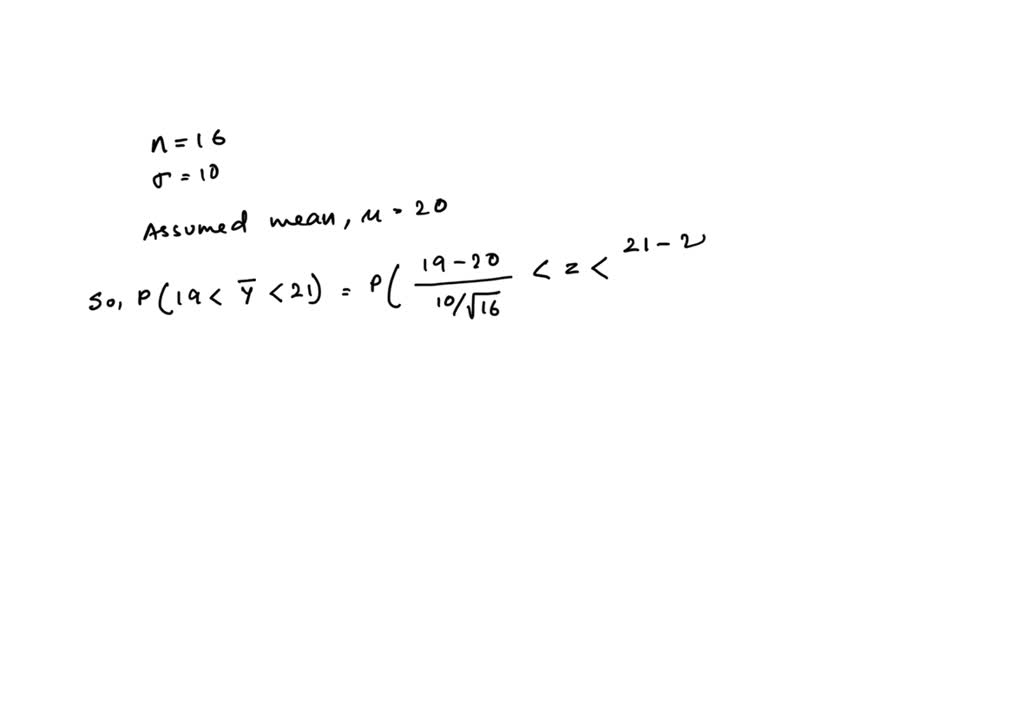 n = 16
σ = 10
Assumed mean, μ = 20
So, P(19 < Ȳ < 21) = P( (19 - 20)/(10/√16) < z < 21 - 2